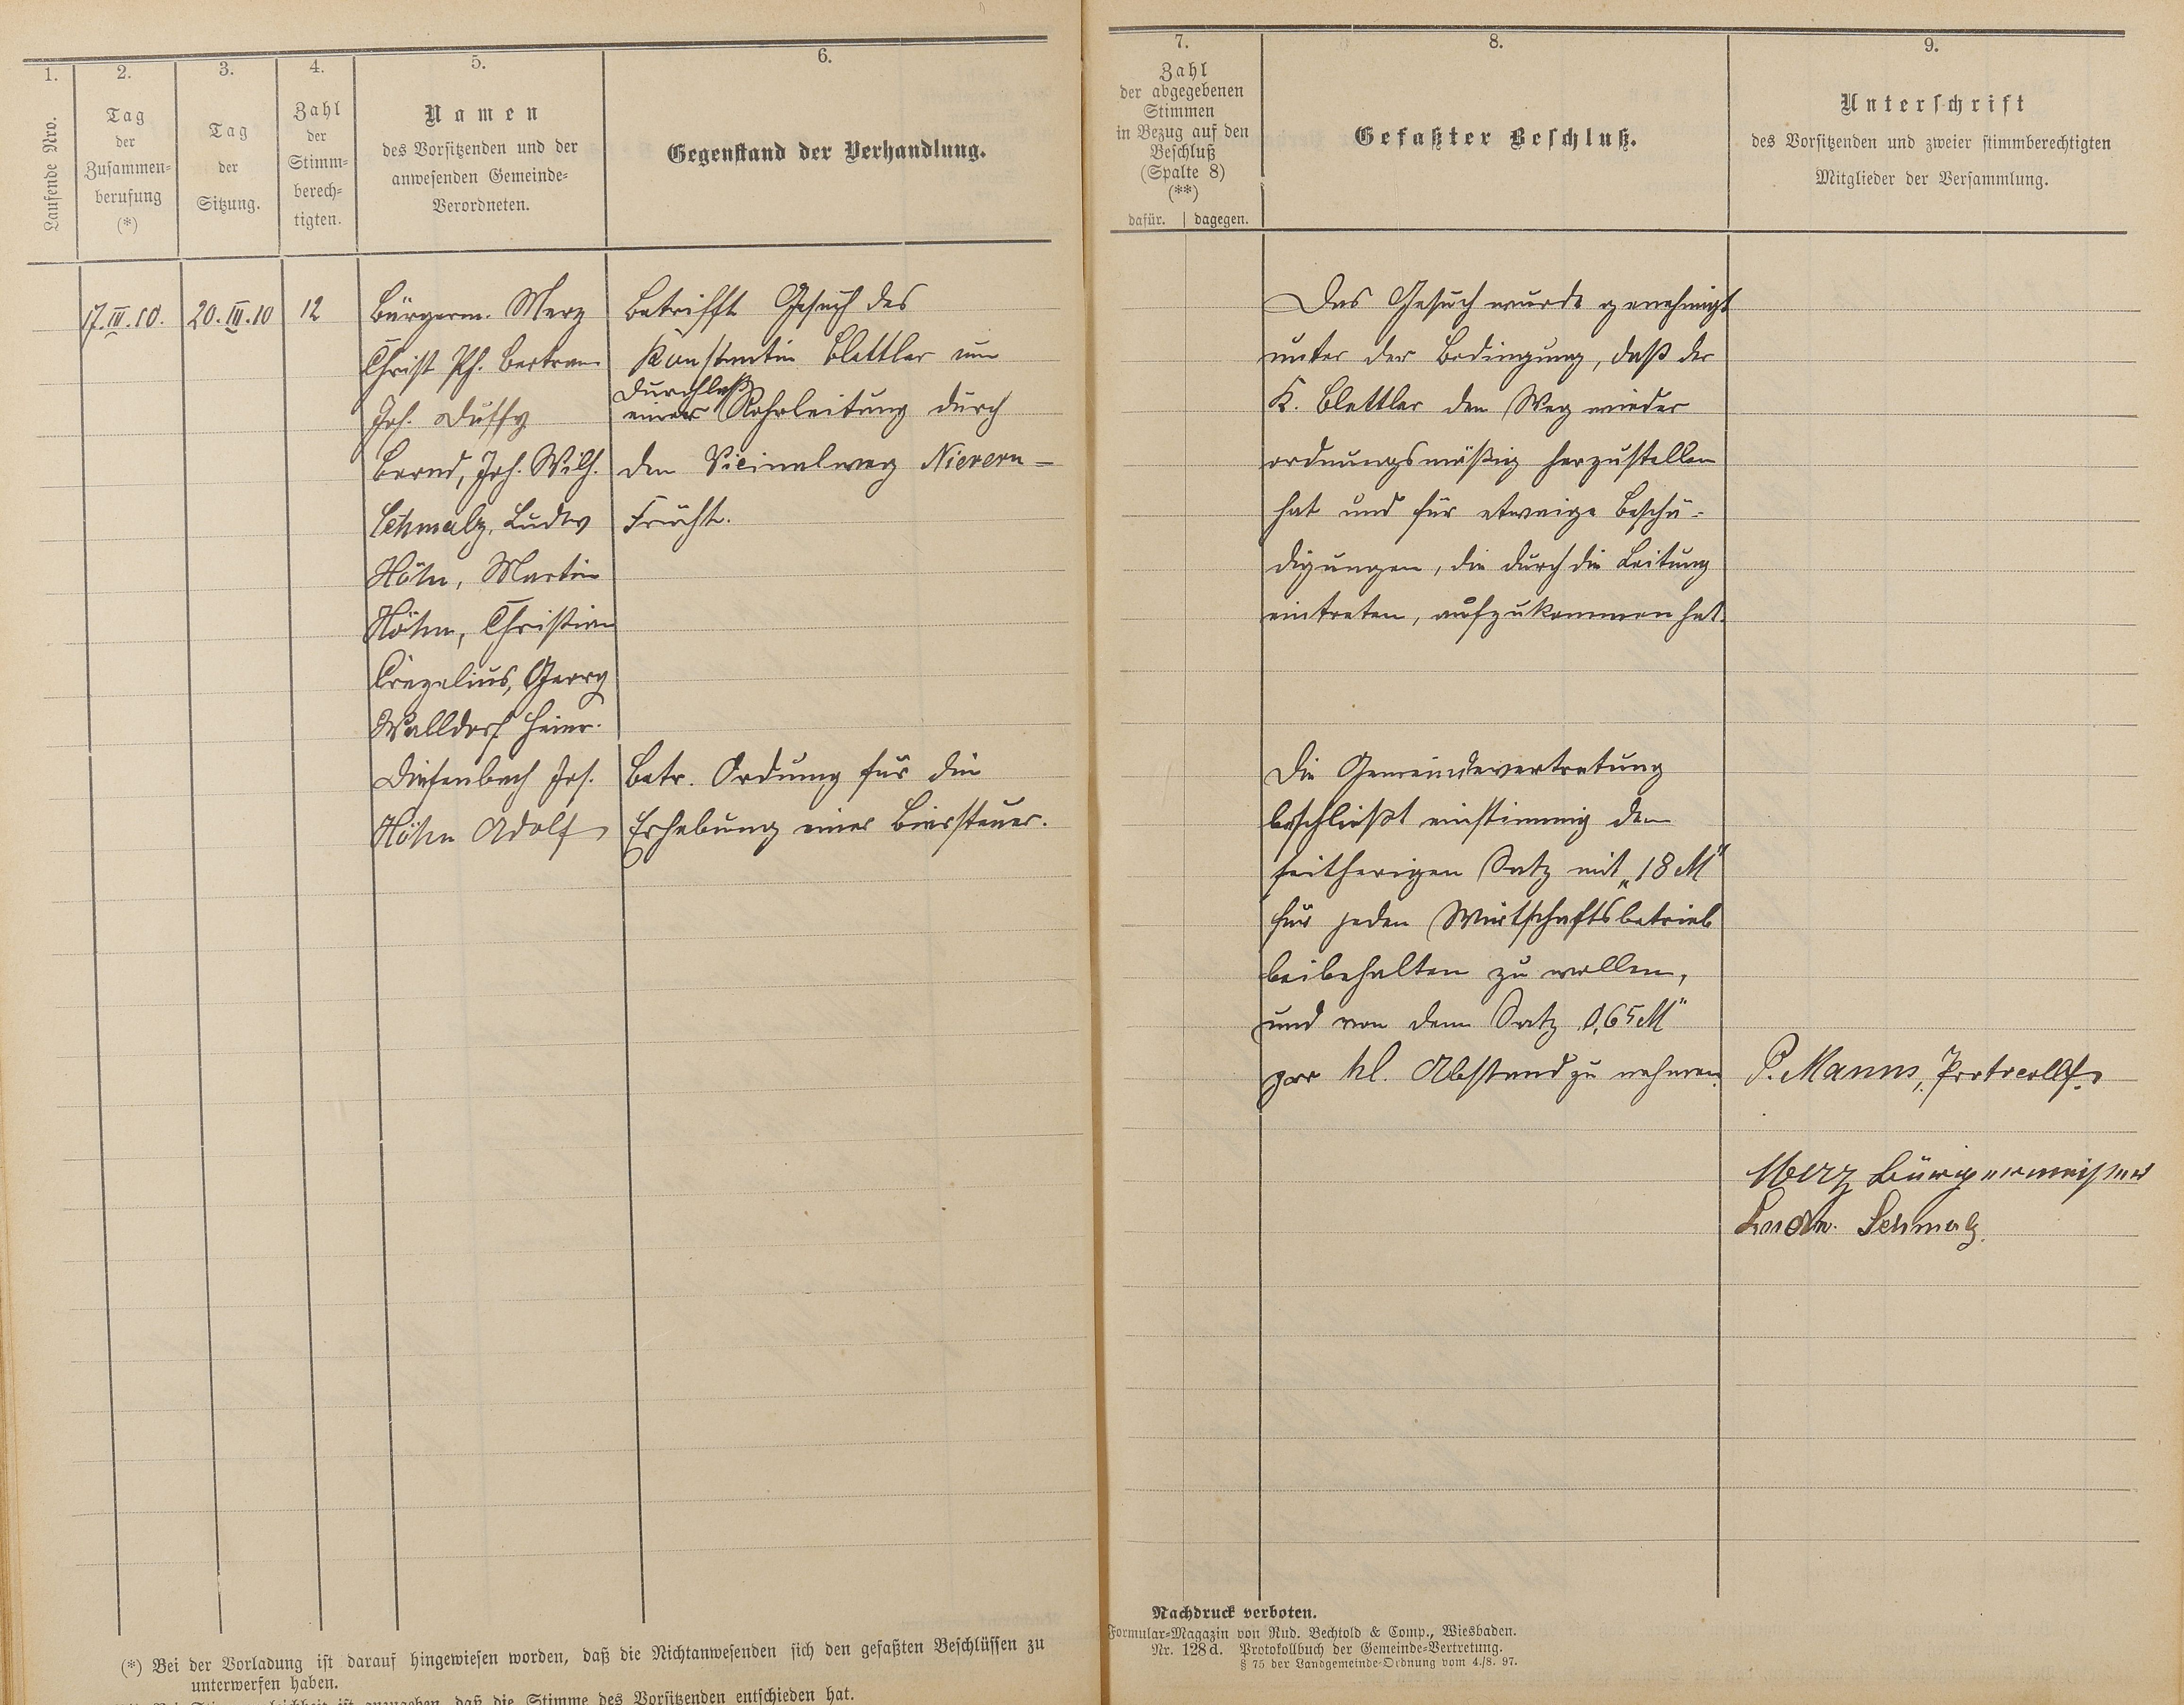 1.
Laufende Nro.
2.
Tag
der
Zusammen-
berufung
(*)
3.
Tag
der
Sitzung.
4.
Zahl
der
Stimm-
berech-
tigten.
5.
Namen
des Vorsitzenden und der
anwesenden Gemeinde-
Verordneten.
6.
Gegenstand der Verhandlung.
7.
Zahl
der abgegebenen
Stimmen
in Bezug auf den
Beschluß
(Spalte 8)
(**)
dafür. | dagegen.
8.
Gefaßter Beschluß.
9.
Unterschrift
des Vorsitzenden und zweier stimmberechtigten
Mitglieder der Versammlung.
17.III.10.
20.III.10
12
Bürgerm. Merz
Christ Ph. Bertram
Joh. Duffy
Bernd, Joh. Wilh.
Schmalz, Ludw
Höhn, Martin
Höhn, Christian
Crezelius, Georg
Walldorf Heinr.
Diefenbach Jos.
Höhn Adolf
Betrifft Gesuch des
Konstantin Blettler um
Durchlaß
einer Rohrleitung durch
den Vicinalweg Nievern-
Frücht.
Betr. Ordnung für die
Erhebung einer Biersteuer.
Das Gesuch wurde genehmigt
unter der Bedingung, daß der
K. Blettler den Weg wieder
ordnungsmäßig herzustellen
hat und für etwaige Beschä-
digungen, die durch die Leitung
eintreten, aufzukommen hat.
Die Gemeindevertretung
beschließt einstimmig den
seitherigen Satz mit „18 M“
für jeden Wirtschaftsbetrieb
beibehalten zu wollen,
und von dem Satz 0,65 M“
pro hl. Abstand zu nehmen.
P. Manns, Protocollf.
Merz Bürgermeister
Ludw. Schmalz.
(*) Bei der Vorladung ist darauf hingewiesen worden, daß die Nichtanwesenden sich den gefaßten Beschlüssen zu
unterwerfen haben.
daß die Stimme des Vorsitzenden entschieden hat.
Nachdruck verboten.
Formular-Magazin von Rud. Bechtold & Comp., Wiesbaden.
Nr. 128d. Protokollbuch der Gemeinde-Vertretung.
§ 75 der Landgemeinde-Ordnung vom 4./8. 97.